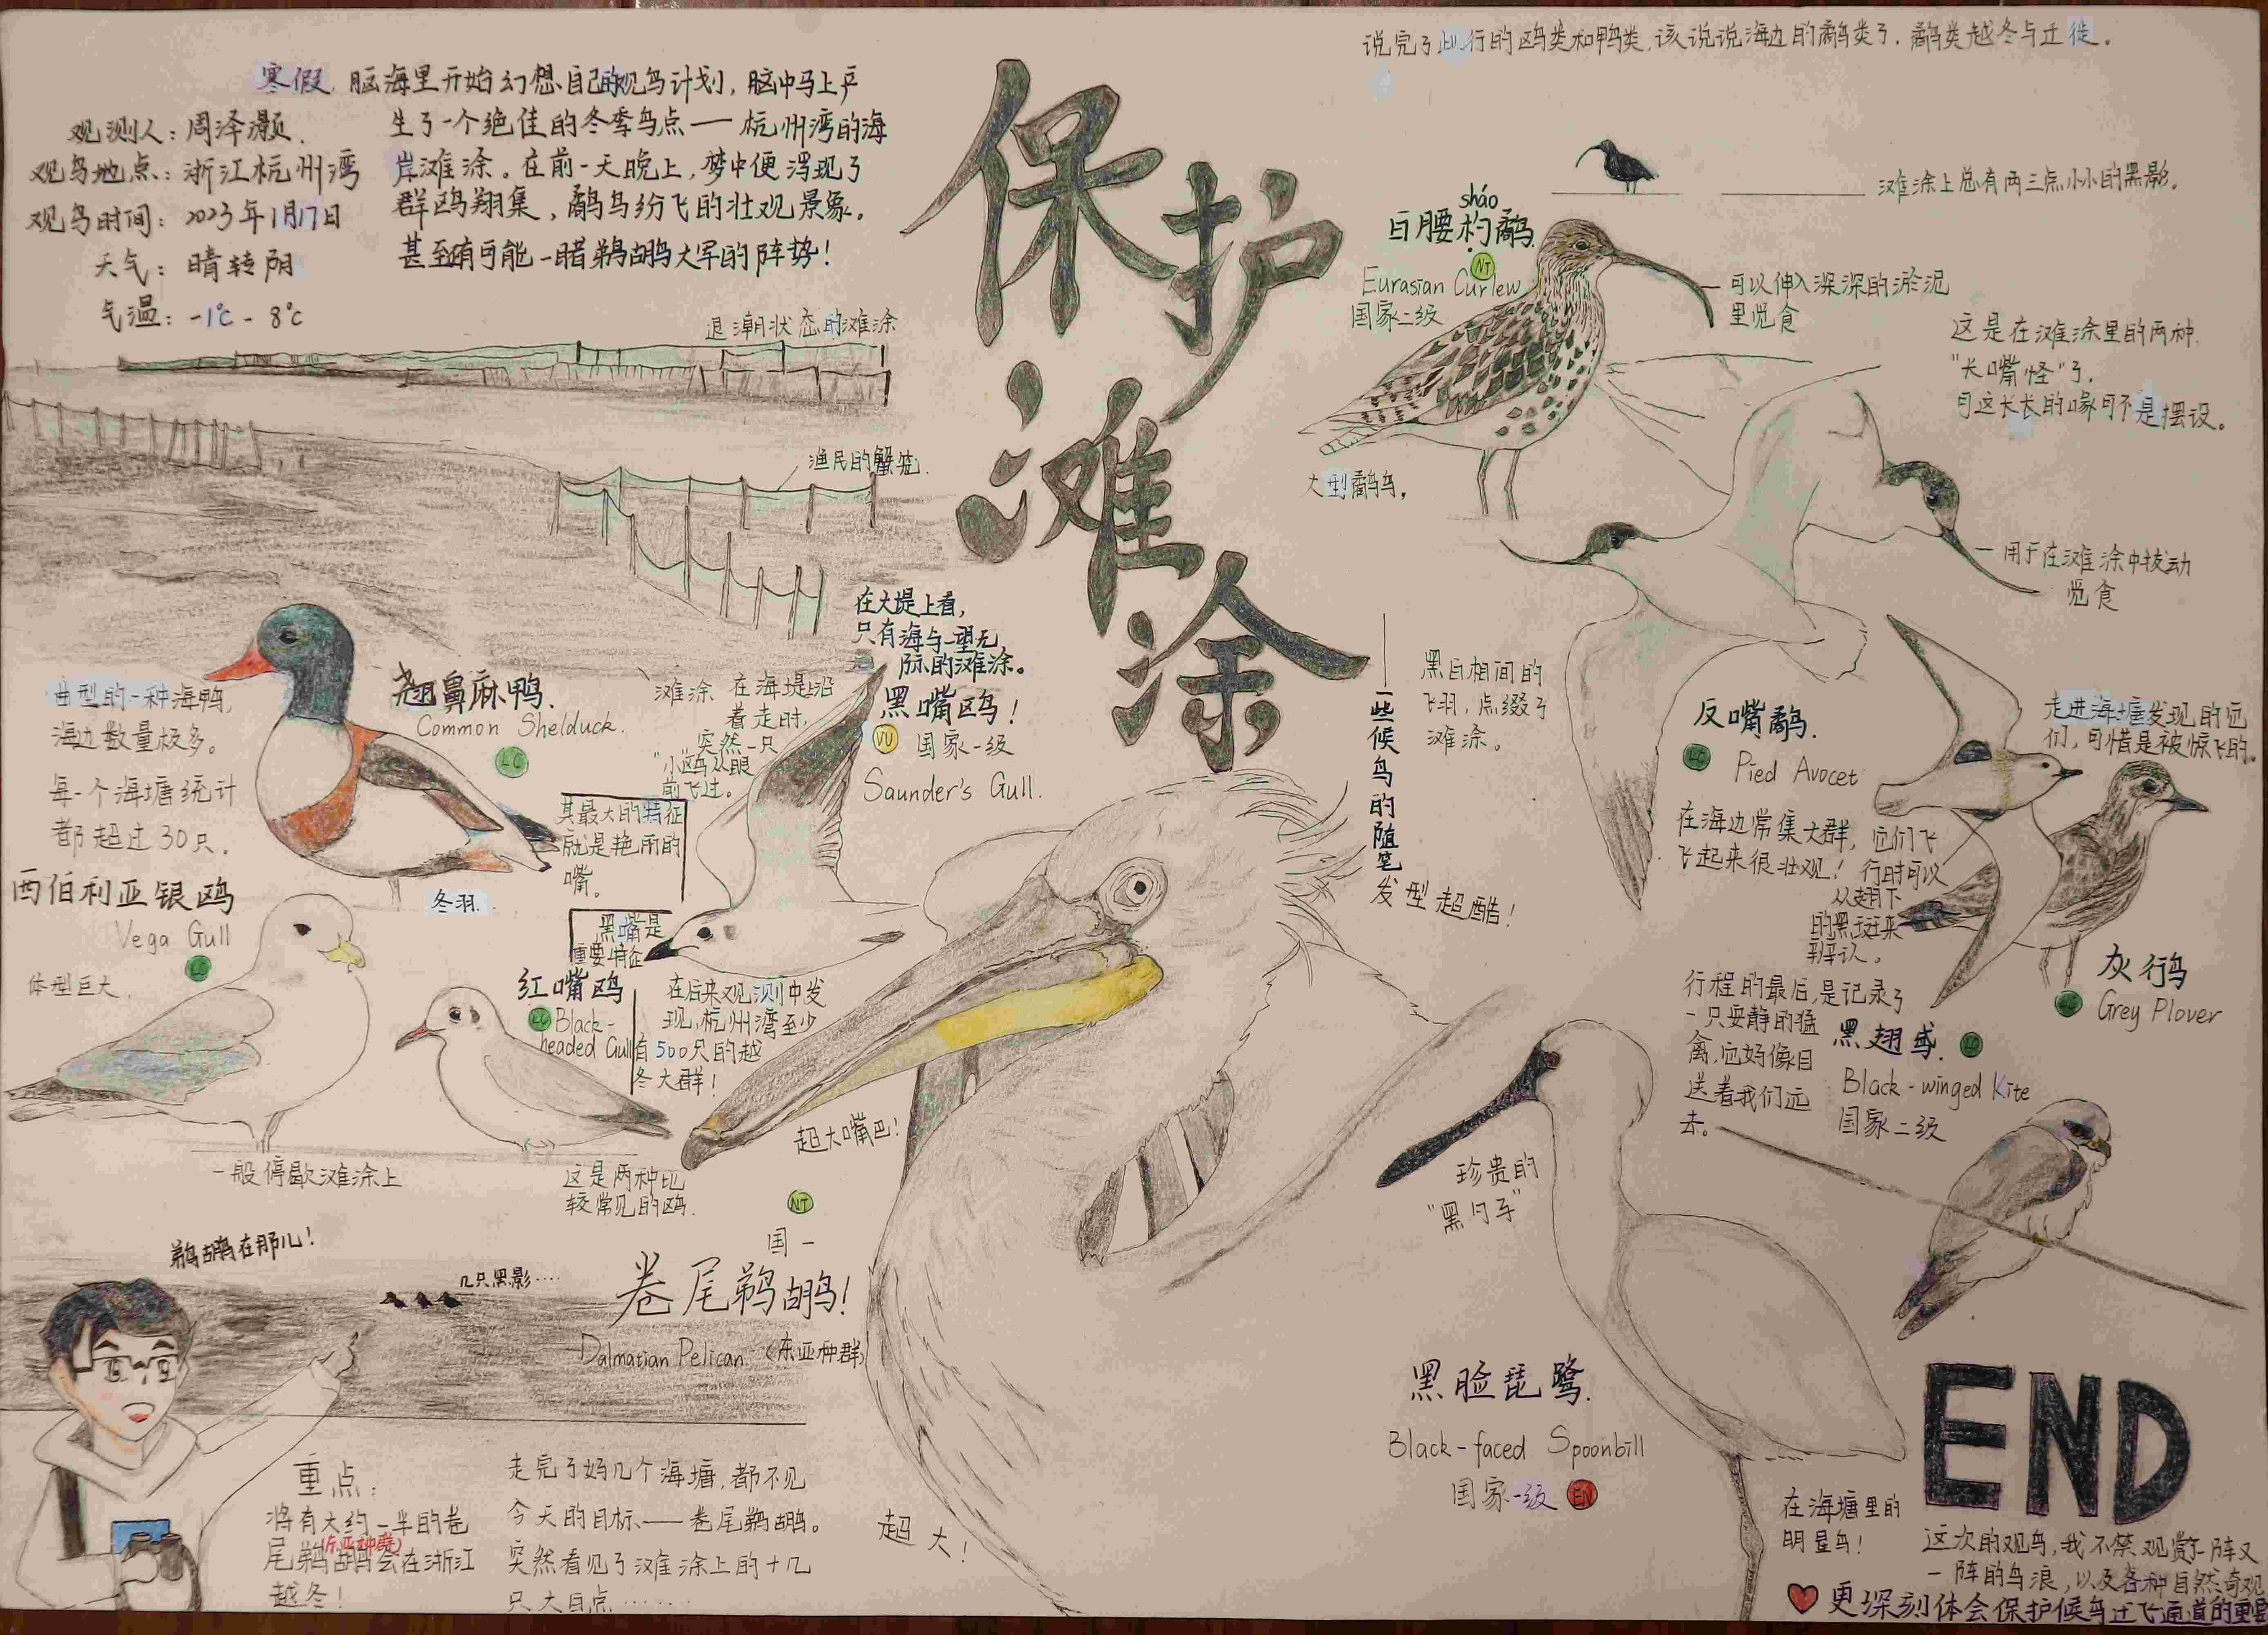 保护滩涂
——一些候鸟的随笔
观测人：周泽灏.
观鸟地点：浙江杭州湾
观鸟时间：2023年1月17日
天气：晴转阴
气温：-1℃ - 8℃
寒假，脑海里开始幻想自己的观鸟计划，脑中马上产
生了一个绝佳的冬季鸟点——杭州湾的海
岸滩涂。在前一天晚上，梦中便浮现了
群鸥翔集，鹬鸟纷飞的壮观景象。
甚至有可能一睹鹈鹕大军的阵势！
退潮状态的滩涂
渔民的蟹笼.
在大堤上看，
只有海与一望无
际的滩涂。
翘鼻麻鸭.
Common Shelduck.
LC
典型的一种海鸭，
海边数量极多。
每一个海塘统计
都超过30只.
其最大的特征
就是艳丽的
嘴。
滩涂
在海堤上沿
着走时，
突然一只
"小"鸥从眼
前飞过。
黑嘴鸥！
VU 国家一级
Saunder's Gull.
黑嘴是
重要特征
在后来观测中发
现，杭州湾至少
有500只的越
冬大群！
西伯利亚银鸥
Vega Gull
LC
体型巨大.
冬羽.
红嘴鸥
LC Black-
headed Gull
一般停歇滩涂上
这是两种比
较常见的鸥.
超大嘴巴！
发型超酷！
NT
国一
卷尾鹈鹕！
Dalmatian Pelican（东亚种群）
鹈鹕在那儿！
几只黑影····
重点：
将有大约一半的卷
(东亚种群)
尾鹈鹕会在浙江
越冬！
走完了好几个海塘，都不见
今天的目标——卷尾鹈鹕。
突然看见了滩涂上的十几
只大白点······
超大！
说完了此行的鸥类和鸭类，该说说海边的鹬类了.鹬类越冬与迁徙.
滩涂上总有两三点小小的黑影。
sháo
白腰杓鹬
NT
Eurasian Curlew
国家二级
可以伸入深深的淤泥
里觅食
大型鹬鸟，
这是在滩涂里的两种
"长嘴怪"了.
可这长长的喙可不是摆设。
用于在滩涂中拨动
觅食
黑白相间的
飞羽，点缀了
滩涂。
反嘴鹬.
LC Pied Avocet
在海边常集大群，
飞起来很壮观！
走进海塘发现的它
们，可惜是被惊飞的。
它们飞
行时可以
从翅下
的黑斑来
辨认。
灰鸻
LC Grey Plover
行程的最后，是记录了
一只安静的猛
禽，它好像目
送着我们远
去。
黑翅鸢. LC
Black-winged Kite
国家二级
珍贵的
"黑勺子"
黑脸琵鹭.
Black-faced Spoonbill
国家一级 EN
在海塘里的
明星鸟！
END
这次的观鸟，我不禁观赏了一阵又
一阵的鸟浪，以及各种自然奇观
更深刻体会保护候鸟迁飞通道的重要